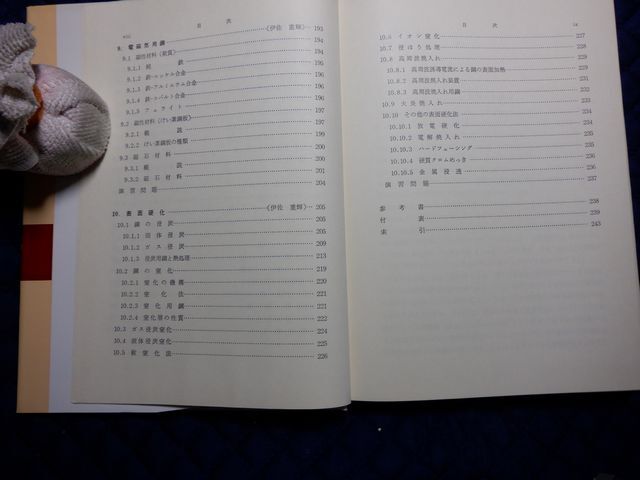 viii 目次
9. 電磁気用鋼 《伊佐 重輝》 193
9.1 磁性材料(軟質) 194
9.1.1 純鉄 195
9.1.2 鉄-ニッケル合金 196
9.1.3 鉄-アルミニウム合金 196
9.1.4 鉄-コバルト合金 196
9.1.5 フェライト 196
9.2 磁性材料(けい素鋼板) 197
9.2.1 概説 197
9.2.2 けい素鋼板の種類 199
9.3 磁石材料 200
9.3.1 概説 200
9.3.2 磁石材料 201
演習問題 204
10. 表面硬化 《伊佐 重輝》 205
10.1 鋼の浸炭 205
10.1.1 固体浸炭 205
10.1.2 ガス浸炭 209
10.1.3 浸炭用鋼と熱処理 213
10.2 鋼の窒化 219
10.2.1 窒化の機構 221
10.2.2 窒化法 221
10.2.3 窒化用鋼 221
10.2.4 窒化層の性質 222
10.3 ガス浸炭窒化 224
10.4 液体浸炭窒化 225
10.5 軟窒化法 226
目次 ix
10.6 イオン窒化 227
10.7 浸ほう処理 227
10.8 高周波焼入れ
10.8.1 高周波誘導電流による鋼の表面加熱
10.8.2 高周波焼入れ装置
10.8.3 高周波焼入れ用鋼
10.9 火炎焼入れ
10.10 その他の表面硬化法
10.10.1 放電硬化
10.10.2 電解焼入れ
10.10.3 ハードフェーシング
10.10.4 硬質クロムめっき
10.10.5 金属浸透 236
演習問題 237
参考書 238
付表 239
索引 243